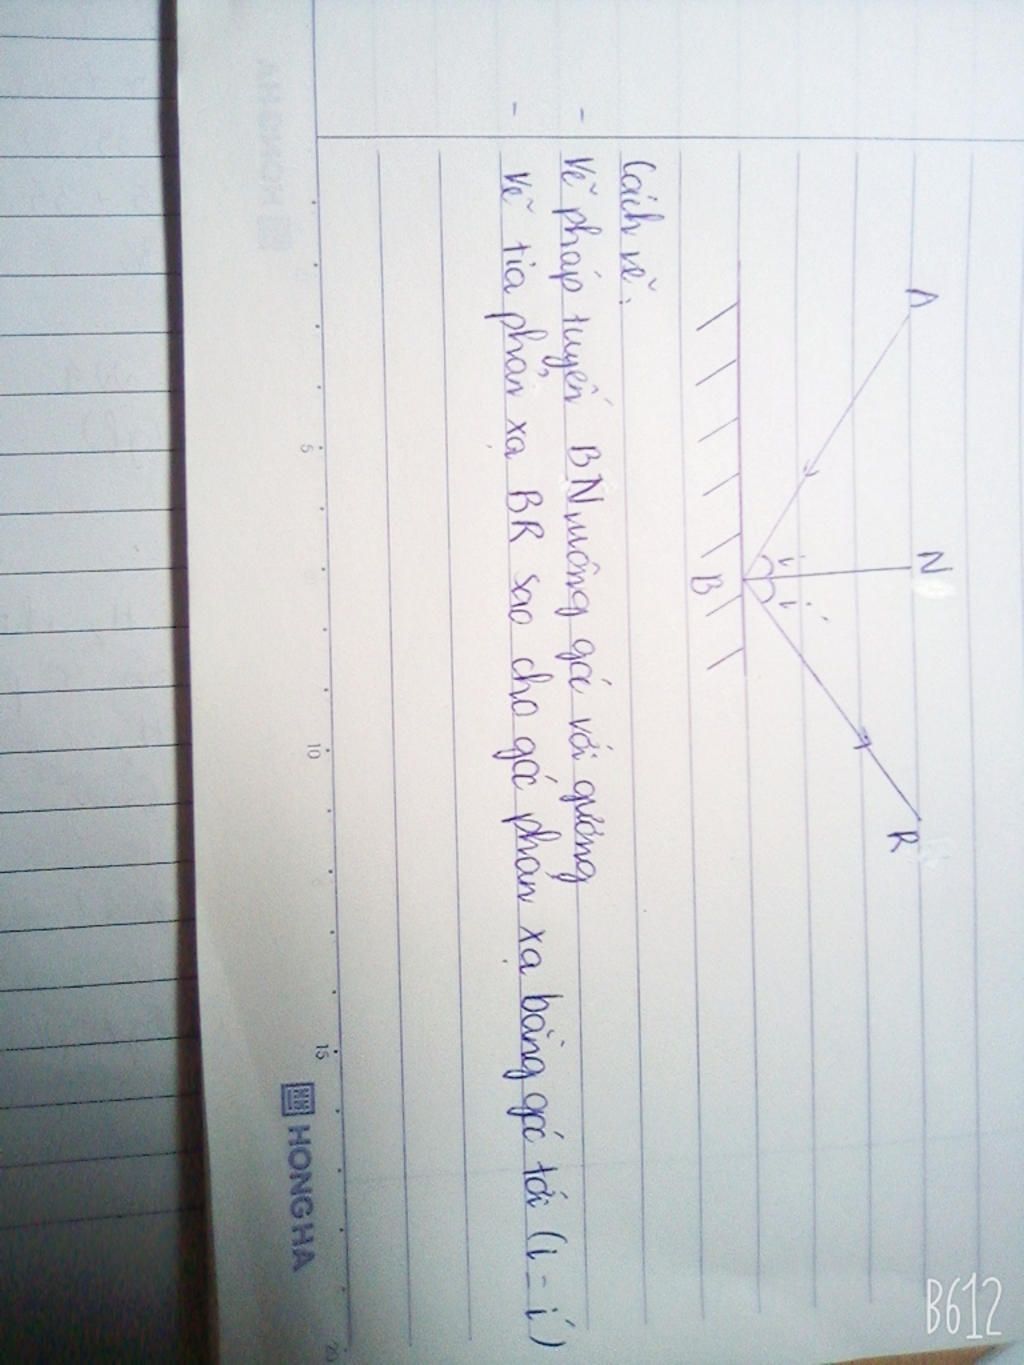 A
N
R
i
i'
B
Cách vẽ:
- Vẽ pháp tuyến BN vuông góc với gương
- vẽ tia phản xạ BR sao cho góc phản xạ bằng góc tới (i = i')
5
10
15
20
HONG HA
B612